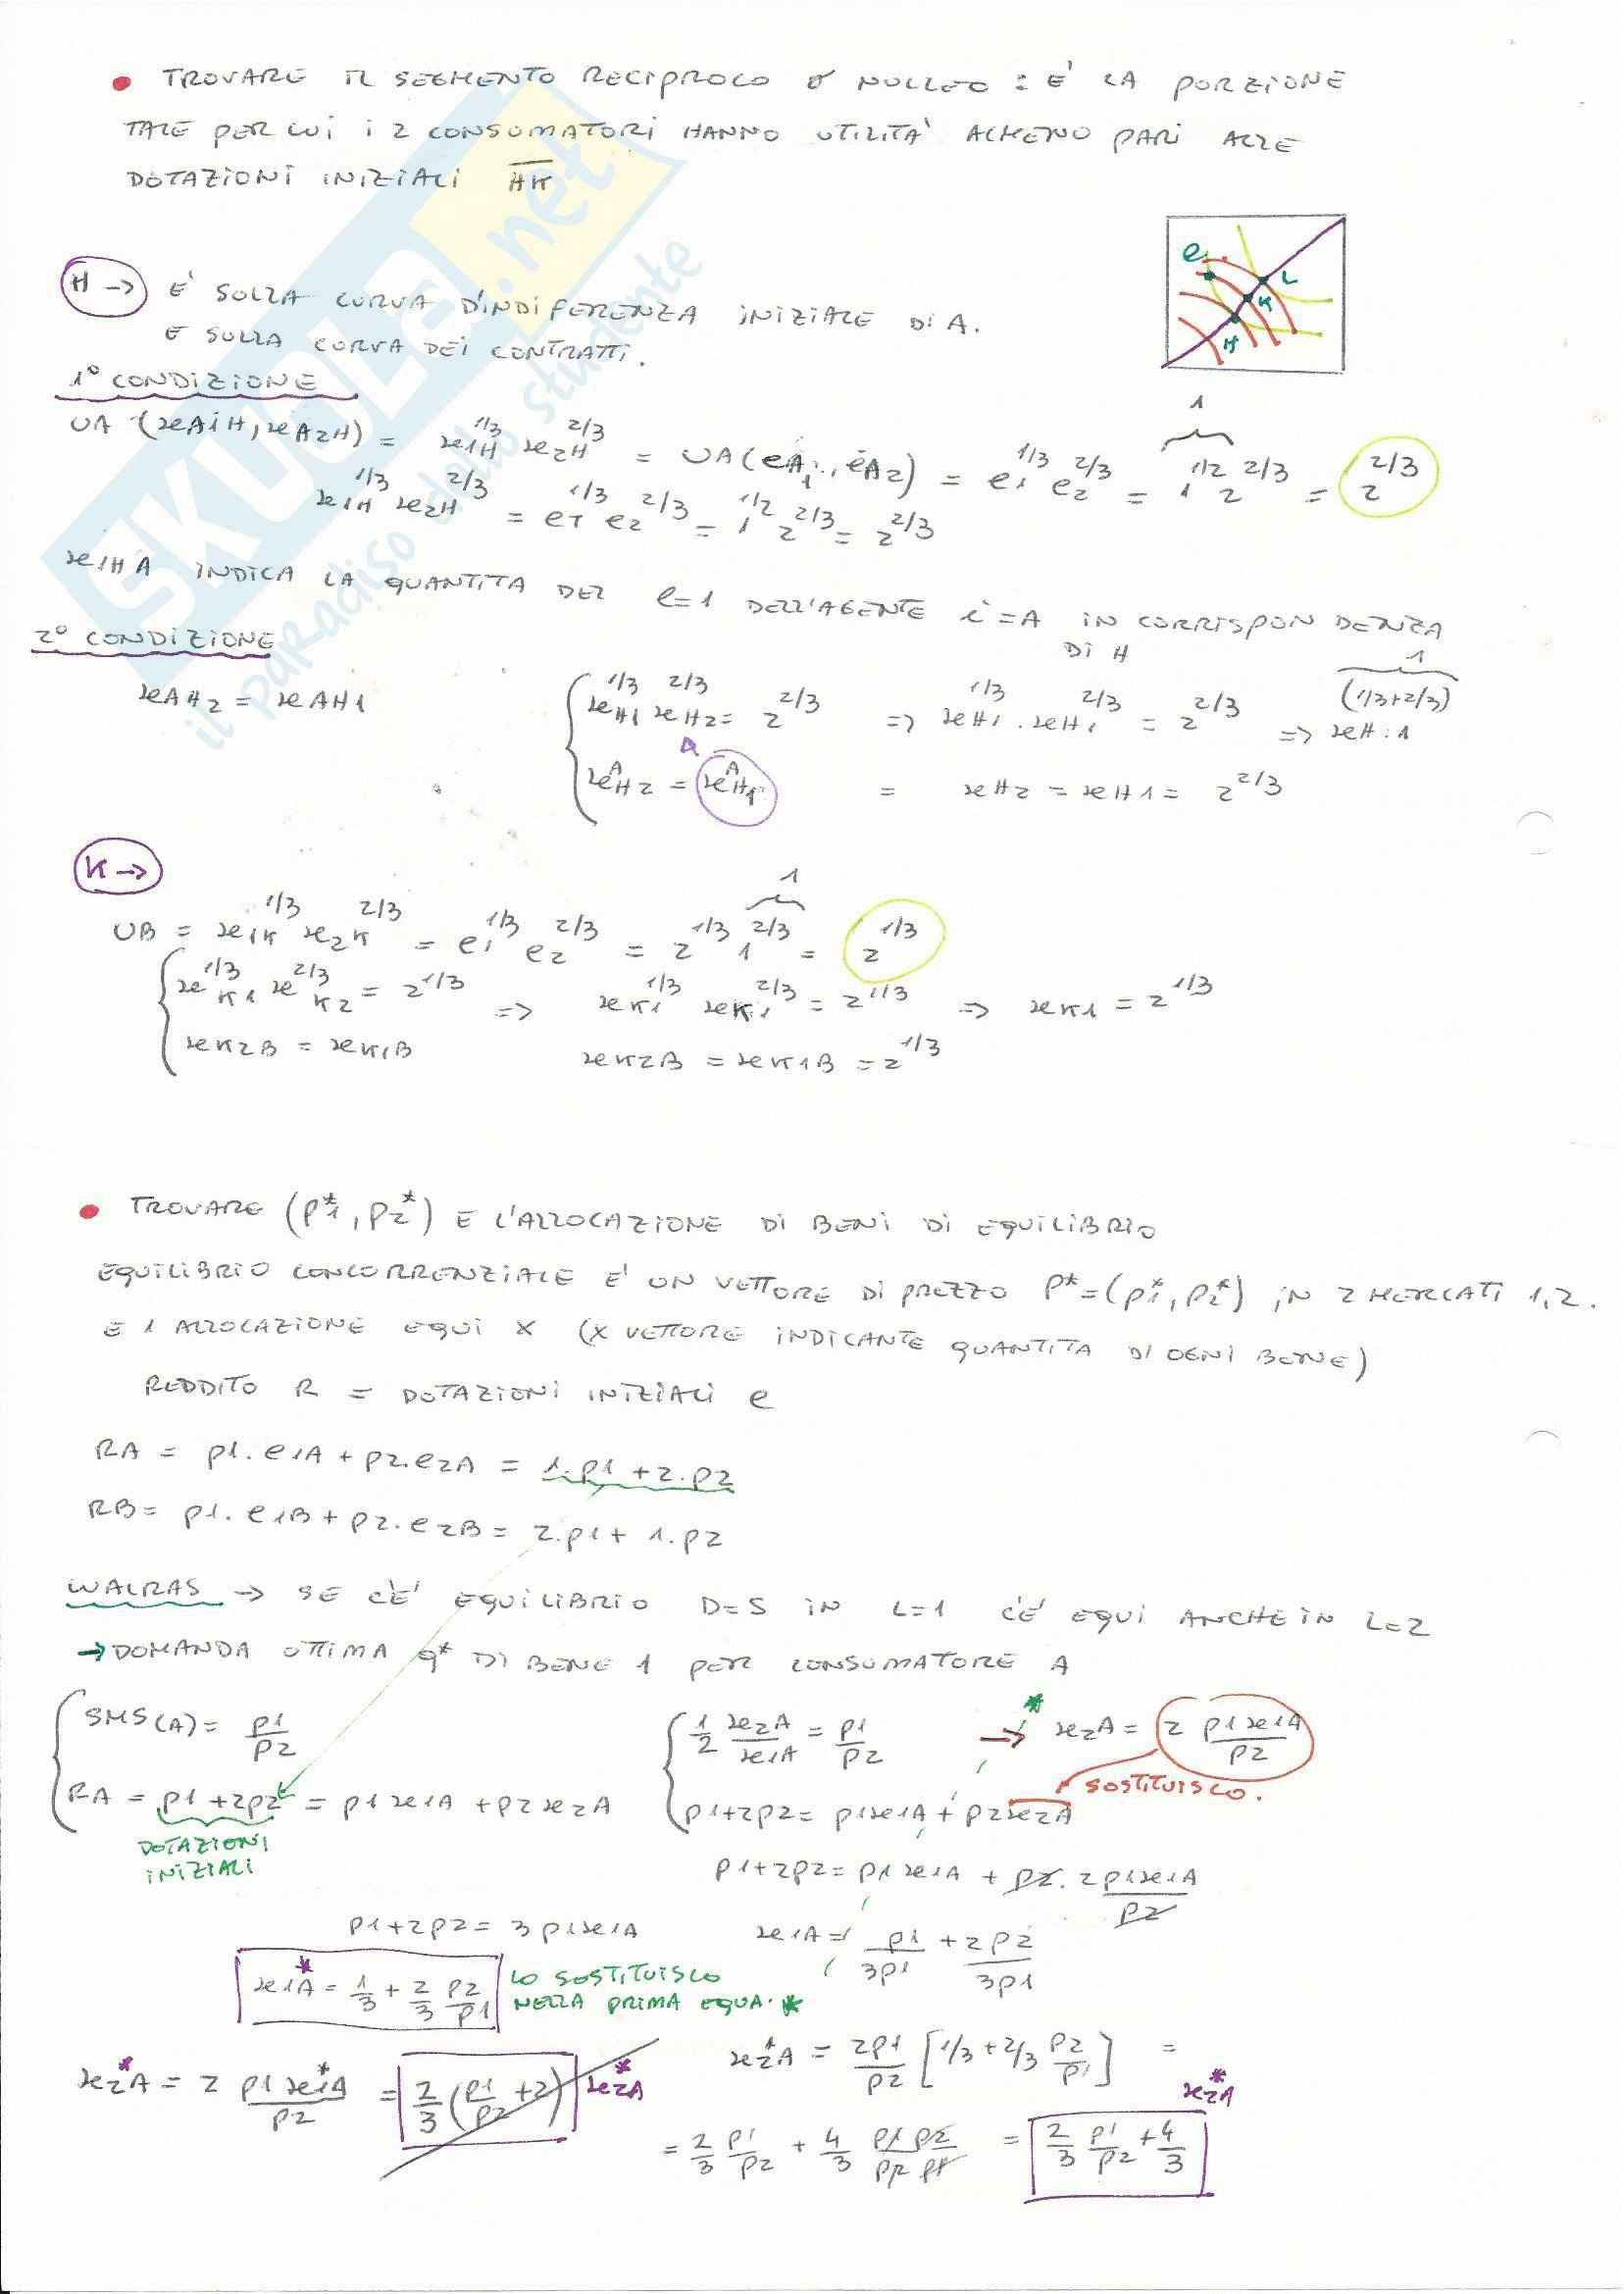 • TROVARE IL SEGMENTO RECIPROCO O NUCLEO: E' LA PORZIONE
TALE PER CUI i 2 CONSUMATORI HANNO UTILITA' ALMENO PARI ALLE
DOTAZIONI INIZIALI HK
H -> E' SULLA CURVA D'INDIFFERENZA INIZIALE DI A.
E SULLA CURVA DEI CONTRATTI.
e L K H
1° CONDIZIONE
UA (xA1H, xA2H) = x1H^1/3 x2H^2/3 = UA(eA1, eA2) = e1^1/3 e2^2/3 = 1^1/2 2^2/3 = 2^2/3
1
x1H^1/3 x2H^2/3 = e1^1/3 e2^2/3 = 1^1/2 2^2/3 = 2^2/3
x1HA INDICA LA QUANTITA DEL l=1 DELL'AGENTE i=A IN CORRISPONDENZA
DI H
2° CONDIZIONE
xAH2 = xAH1
xH1^1/3 xH2^2/3 = 2^2/3 => xH1^1/3 · xH1^2/3 = 2^2/3 => xH·1^(1/3+2/3)
1
xH2^A = xH1^A = xH2 = xH1 = 2^2/3
K ->
1
UB = x1K^1/3 x2K^2/3 = e1^1/3 e2^2/3 = 2^1/3 1^2/3 = 2^1/3
xK1^1/3 xK2^2/3 = 2^1/3 => xK1^1/3 xK1^2/3 = 2^1/3 => xK1 = 2^1/3
xK2B = xK1B xK2B = xK1B = 2^1/3
• TROVARE (P1*, P2*) E L'ALLOCAZIONE DI BENI DI EQUILIBRIO
EQUILIBRIO CONCORRENZIALE E' UN VETTORE DI PREZZO P*=(P1*, P2*) IN 2 MERCATI 1,2.
E 1 ALLOCAZIONE EQUI X (X VETTORE INDICANTE QUANTITA DI OGNI BENE)
REDDITO R = DOTAZIONI INIZIALI e
RA = p1.e1A + p2.e2A = 1.p1 + 2.p2
RB = p1.e1B + p2.e2B = 2.p1 + 1.p2
WALRAS -> SE C'E' EQUILIBRIO D=S IN L=1 C'E' EQUI ANCHE IN L=2
-> DOMANDA OTTIMA q* DI BENE 1 PER CONSUMATORE A
SMS(A) = p1/p2
1/2 x2A/x1A = p1/p2 -> * x2A = 2 p1x1A/p2
SOSTITUISCO.
RA = p1+2p2 = p1x1A + p2x2A
p1+2p2 = p1x1A + p2x2A
DOTAZIONI
INIZIALI
p1+2p2 = p1x1A + p2.2p1x1A/p2
p1+2p2 = 3p1x1A
x1A = p1/3p1 + 2p2/3p1
x1A* = 1/3 + 2/3 p2/p1
LO SOSTITUISCO
NELLA PRIMA EQUA. *
x2A* = 2 p1x1A*/p2 = 2/3 (p1/p2 + 2) x2A*
x2A* = 2p1/p2 [1/3 + 2/3 p2/p1] =
x2A*
= 2/3 p1/p2 + 4/3 p1p2/p2p1 = 2/3 p1/p2 + 4/3
SKUOLA.net
il paradiso dello studente